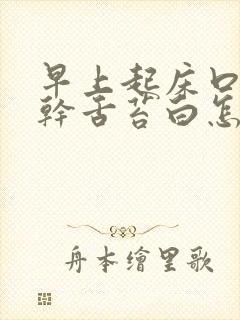 早上起床口
幹舌苔白怎
舟本繪里歌